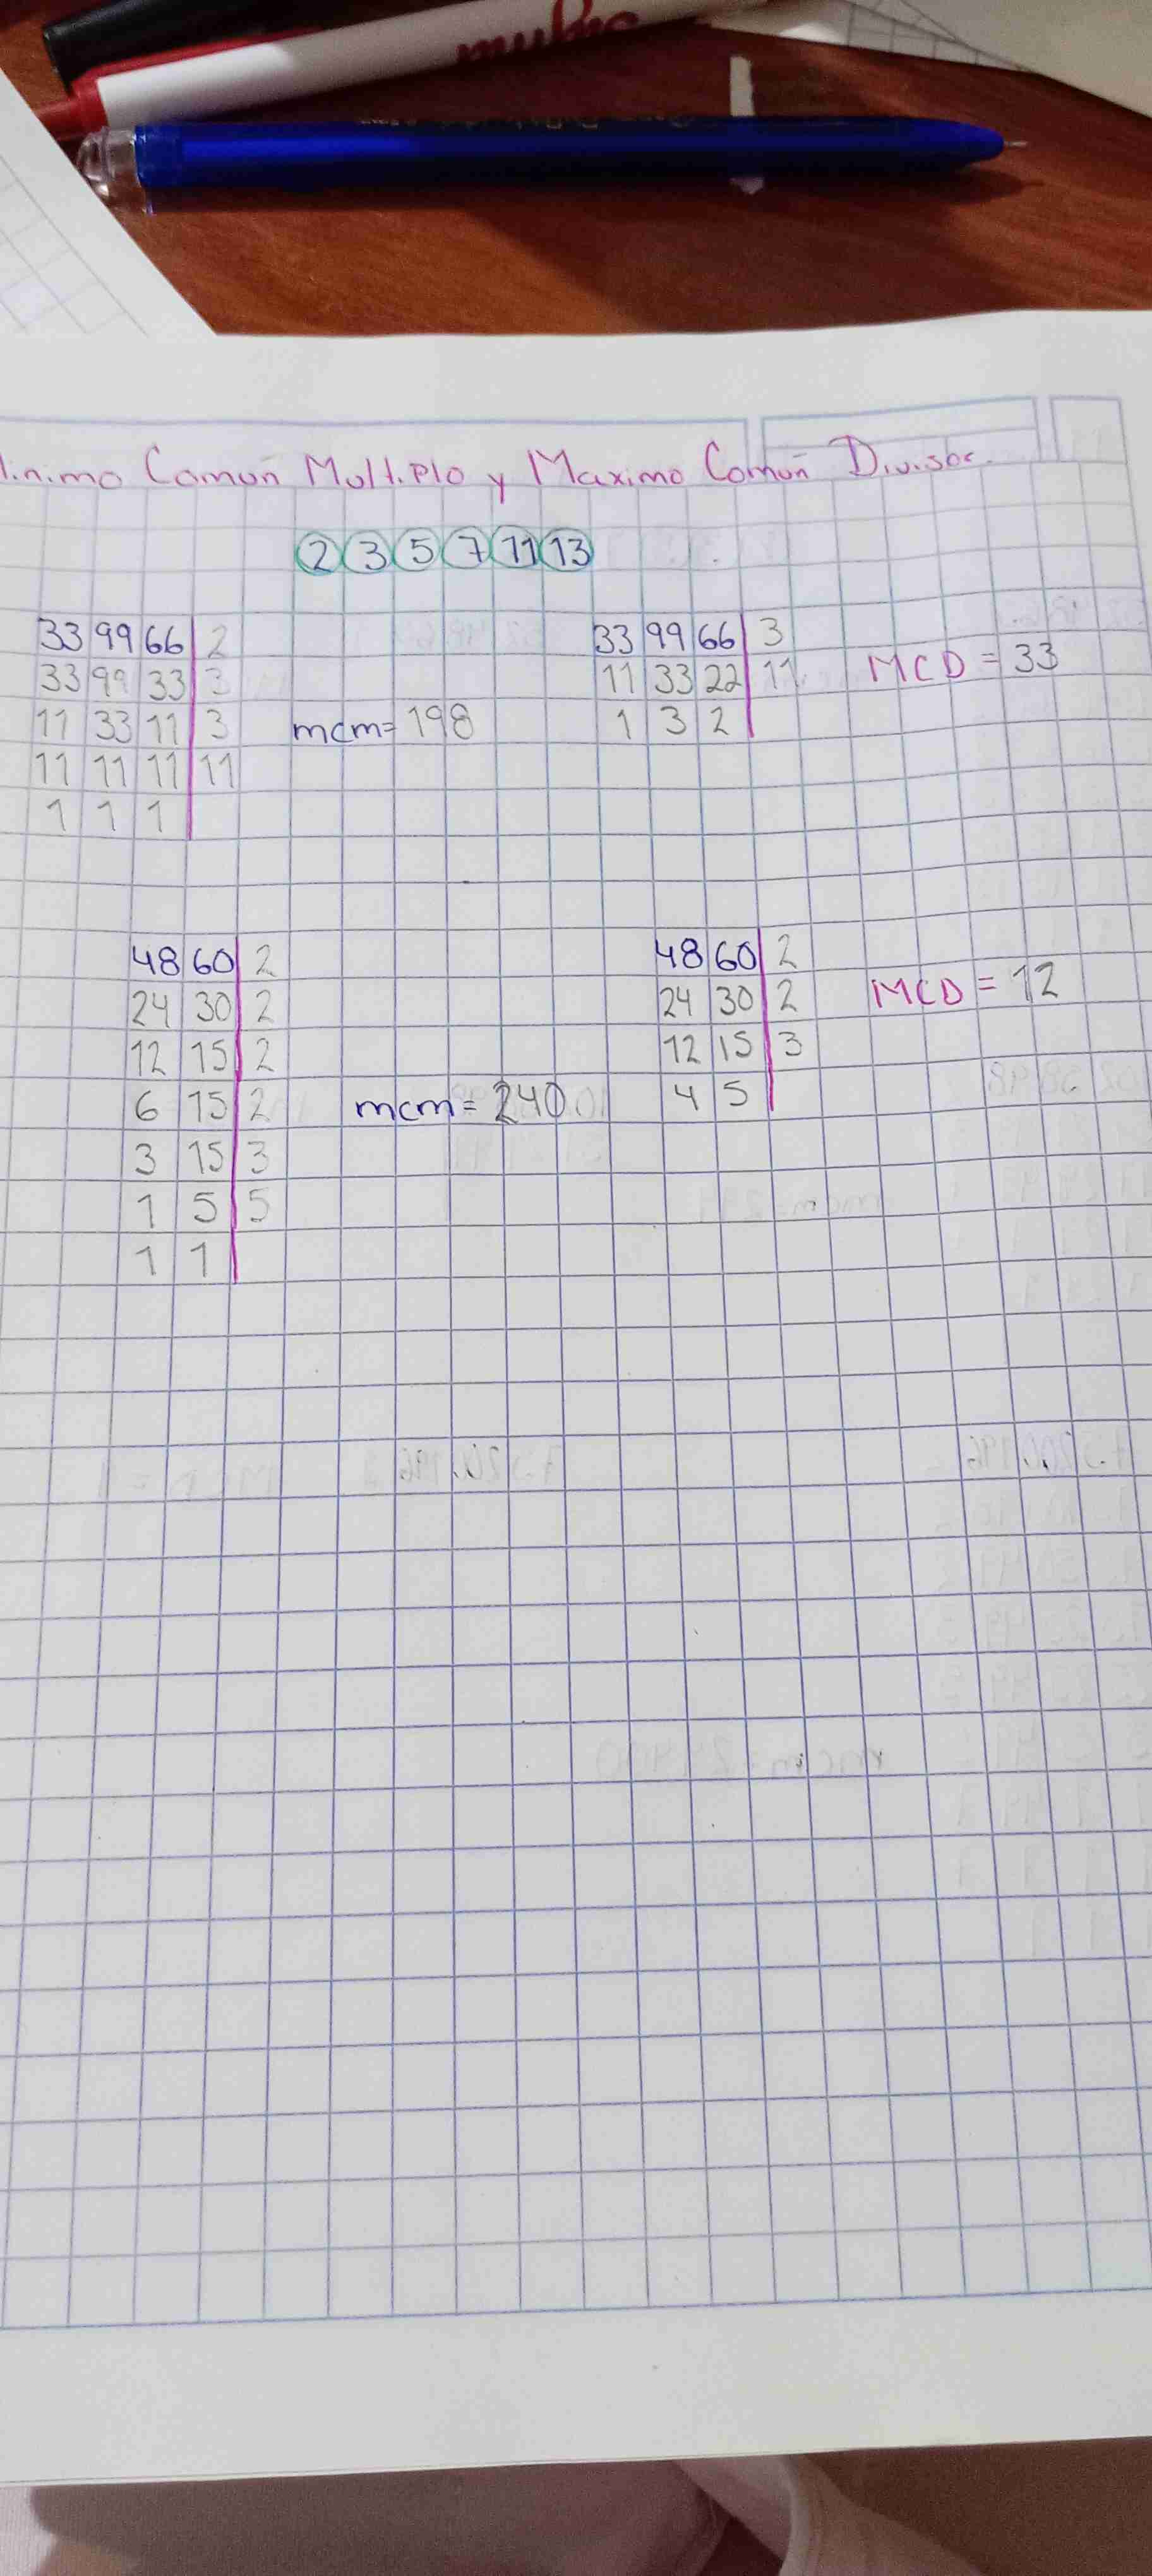 Minimo Común Multiplo y Maximo Común Divisor.
2 3 5 7 11 13
33 99 66 2
33 99 33 3
11 33 11 3
11 11 11 11
1 1 1
mcm= 198
33 99 66 3
11 33 22 11
1 3 2
MCD = 33
48 60 2
24 30 2
12 15 2
6 15 2
3 15 3
1 5 5
1 1
mcm= 240
48 60 2
24 30 2
12 15 3
4 5
MCD = 12